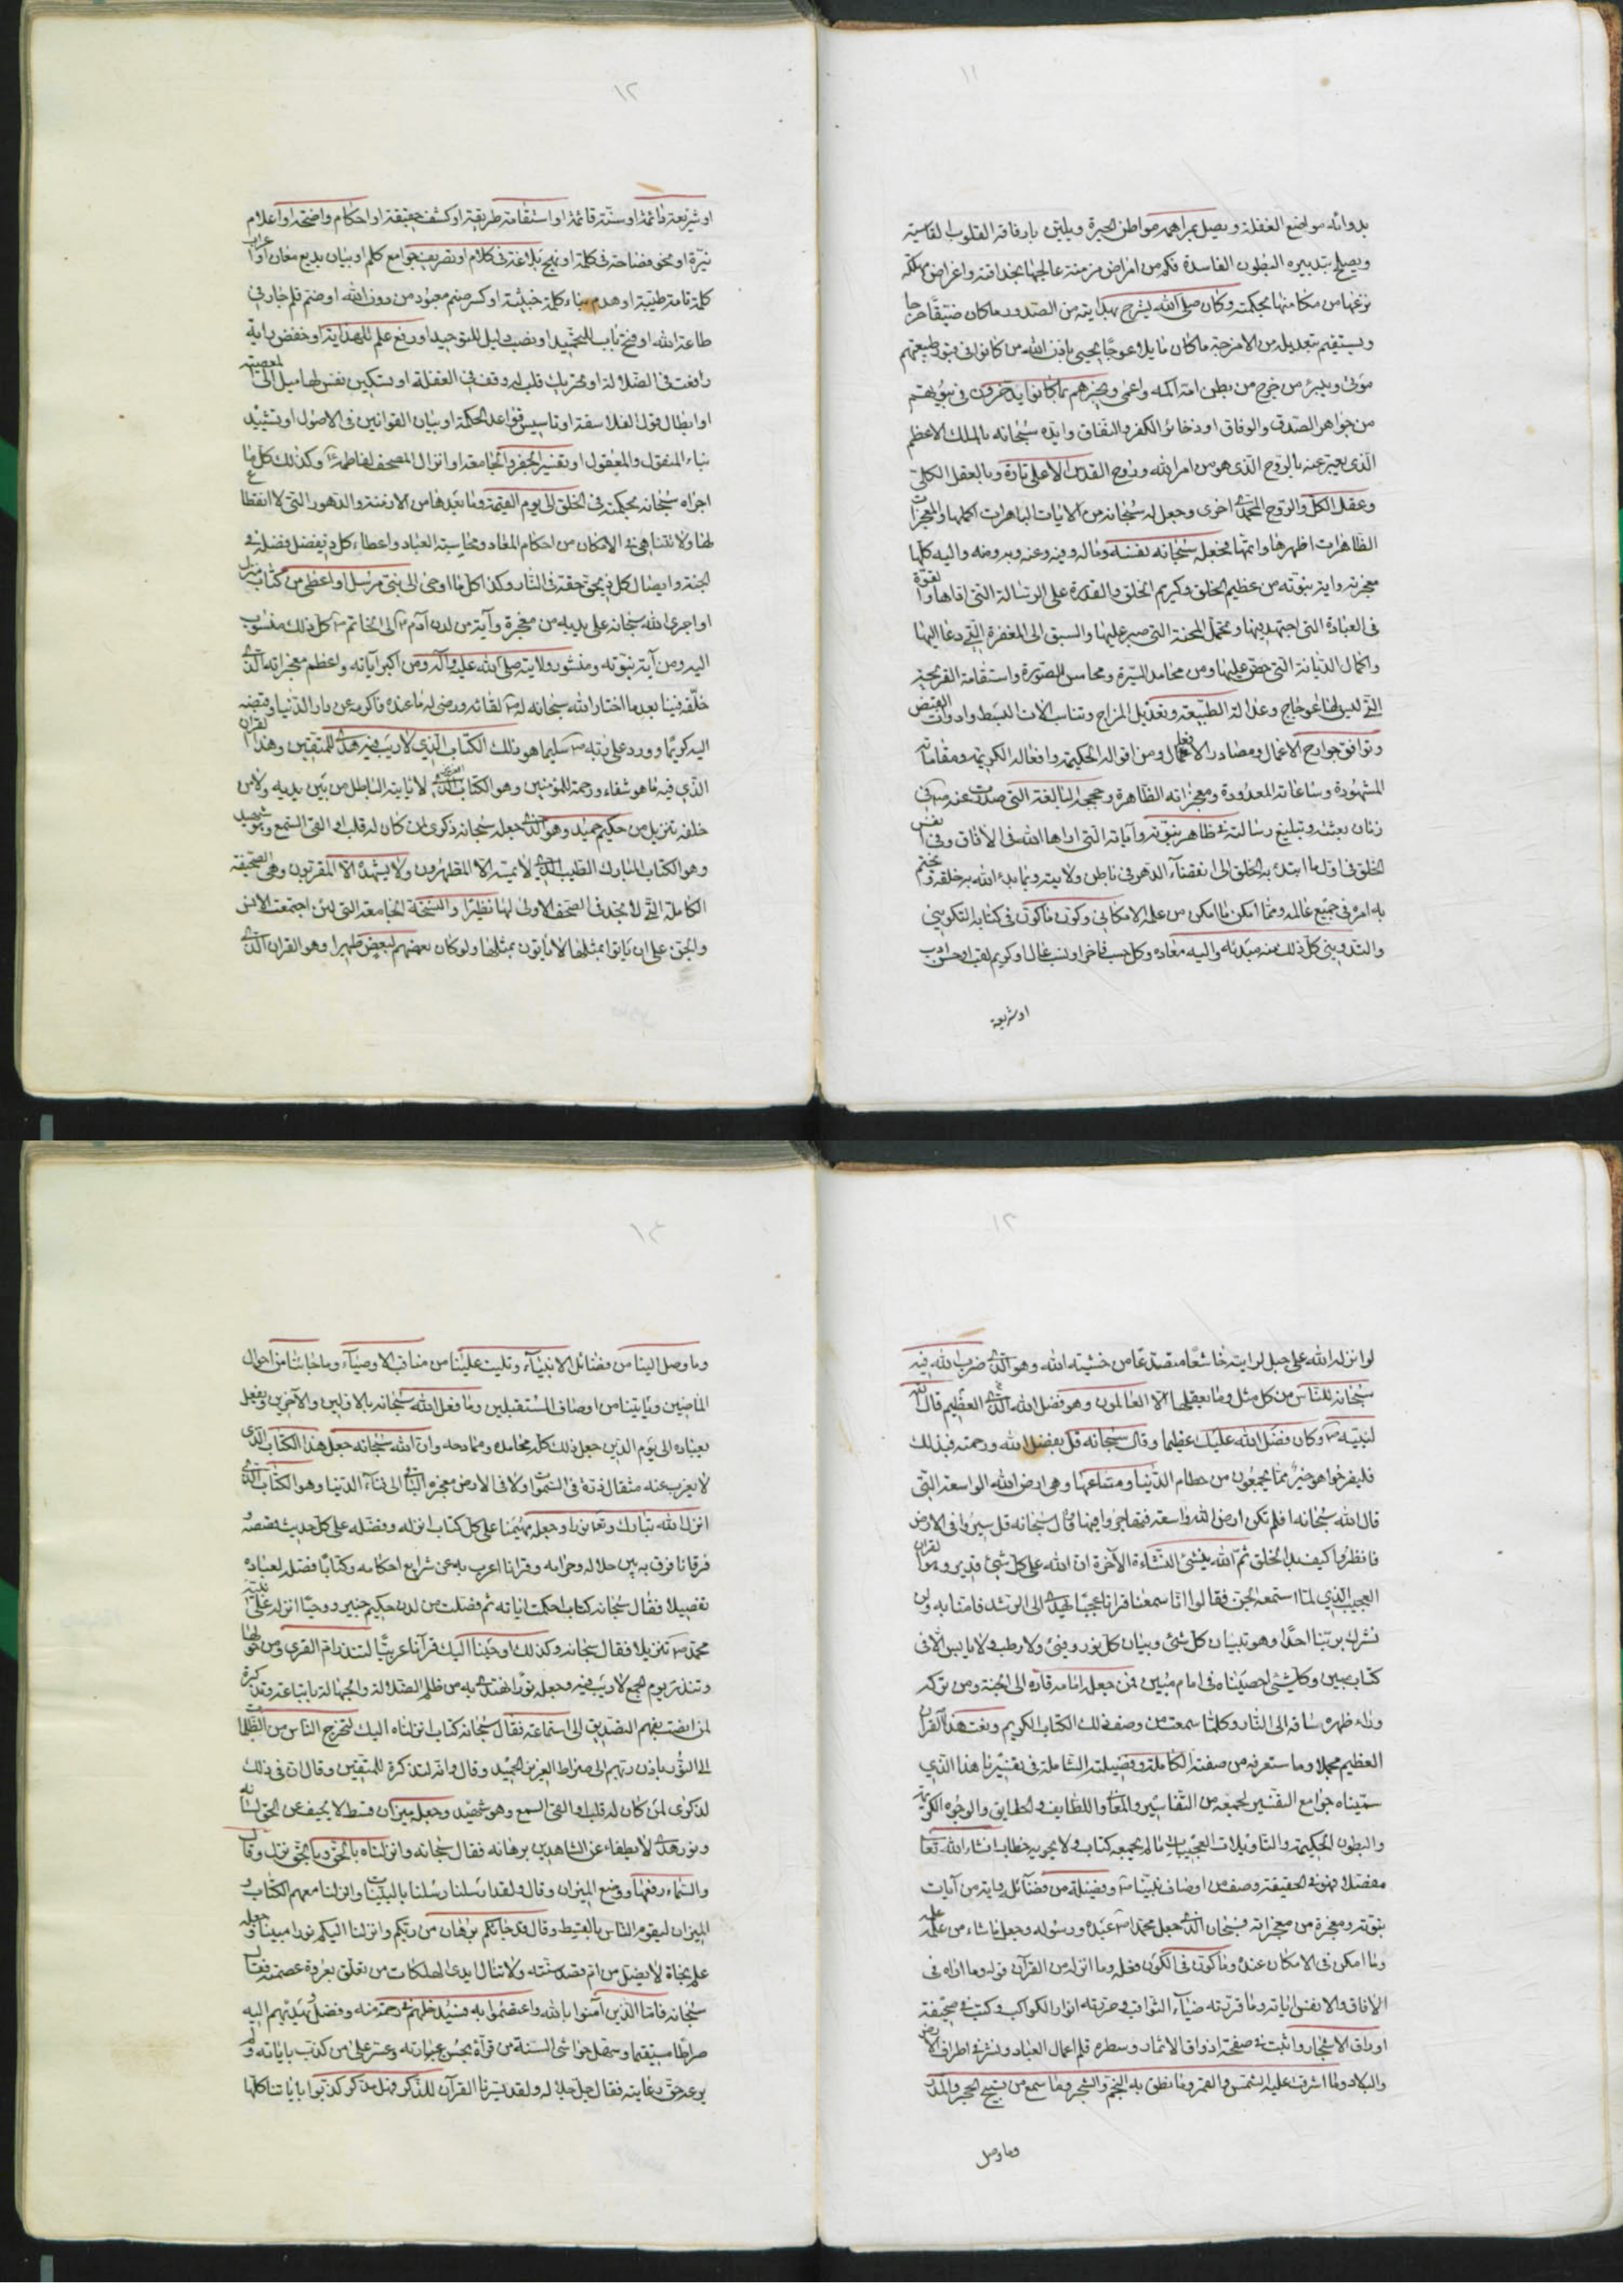 ١١
بدوائه مواضع الغفلة ويصل بمراهمه مواطن الحيرة ويلين بارفاقه القلوب القاسية
ويصلح بتدبيره البطون الفاسدة فكم من امراض مزمنة عالجها بحذاقته واغراض مهلكة
نزعها من مكامنها بحكمته وكان صلى الله يشرح بهدايته من الصدور ما كان ضيقا حرجا
ويستقيم بتعديله من الامزجة ما كان مايلا عوجا يحيى باذن الله من كانوا فى قبور طبيعتهم
موتى ويبرئ من خرج من بطن امه اكمه واعمى ويخبرهم بما كانوا يدخرون فى بيوتهم
من جواهر الصدق والوفاق او ذخائر الكفر والنفاق وايده سبحانه بالملك الاعظم
الذى يعبر عنه بالروح الذى هو من امر الله وروح القدس الاعلى تارة وبالعقل الكلى
وعقل الكل والروح المحمدى اخرى وجعل له سبحانه من الايات الباهرات اكملها والمعجزات
الظاهرات اظهرها واتمها فجعل سبحانه نفسه وماله وفيه وعنه وبه ومنه واليه كلها
معجزته واية نبوته من عظيم الخلق وكريم الخلق والقدرة على الرسالة التى اداها والقوة
فى العبادة التى اجتهد فيها وتحمل المحنة التى صبر عليها والسبق الى المغفرة التى دعا اليها
واكمال الديانة التى حض عليها ومن محامد السيرة ومحاسن الصورة واستقامة القريحة
التى ليس لها اعوجاج وعدالة الطبيعة وتعديل المزاج وتناسب الات البسط وادوات القبض
وتوافق جوارح الاعمال ومصادر الافعال ومن اقواله الحكيمة وافعاله الكريمة ومقاماته
المشهودة وساعاته المعدودة ومعجزاته الظاهرة وحججه البالغة التى صدرت عنه ص فى
زمان بعثته وتبليغ رسالته فى ظاهر نبوته واياته التى اراها الله فى الافاق وفى انفس
الخلق فى اول ما ابتدئ به الخلق الى انقضاء الدهر فى باطن ولايته وما بدء الله به خلقه ويختم
به امره فى جميع عالمه ومما امكن ما امكن من علمه الامكانى وكون ما كون فى كتابه التكوينى
والتدوينى كل ذلك منه مبدئه واليه معاده وكل حسب فاخر او نسب عال او كريم لقب او حسن ادب
او شريعة
١٢
او شريعة دائمة او سنة قائمة او استقامة طريقة او كشف حقيقة او احكام واضحة او اعلام
نيرة او محض فصاحة فى كلمة او نهج بلاغة فى كلام او تصريف جوامع كلم او بيان بديع معان او اعراب
كلمة تامة طيبة او هدم بناء كلمة خبيثة او كسر صنم معبود من دون الله او ضم قلم جار فى
طاعة الله او فتح باب للتمجيد او نصب دليل للتوحيد او رفع علم للهداية او خفض راية
رافعت فى الضلالة او تحريك قلب له وقف فى الغفلة او تسكين نفس لها ميل الى المعصية
او ابطال قول الفلاسفة او تاسيس قواعد الحكمة او بيان القوانين فى الاصول او تشييد
بناء المنقول والمعقول او تفسير الجفر والجامعة او انزال المصحف لفاطمة ع وكذلك كل ما
اجراه سبحانه بحكمته فى الخلق الى يوم القيمة وما بعدها من الازمنة والدهور التى لا انقطاع
لها ولا تتناهى فى الامكان من احكام المعاد ومحاسبة العباد واعطاء كل ذيفضل فضله فى
الجنة وايصال كل ذيحق حقه فى النار وكذا كل ما اوحى الى نبى مرسل او اعطى من كتاب منزل
او اجرى الله سبحانه على يديه من معجزة وآية من لدن آدم ع الى الخاتم ص كل ذلك منسوب
اليه ومن آية نبوته ومنشور ولايته صلى الله عليه وآله ومن اكبر آياته واعظم معجزاته الذى
خلفه فينا بعد ما اختار الله سبحانه له ص لقائه ورضى له ما عنده فاكرمه عن دار الدنيا وقبضه
اليه كريما وورد على ربه ص سليما هو ذلك الكتاب الذى لا ريب فيه هدى للمتقين وهذا القران
الذى فيه ما هو شفاء ورحمة للمؤمنين وهو الكتاب الذى لا ياتيه الباطل من بين يديه ولا من
خلفه تنزيل من حكيم حميد وهو الذى جعله سبحانه ذكرى لمن كان له قلب او القى السمع وهو شهيد
وهو الكتاب المبارك الطيب الذى لا يمسه الا المطهرون ولا يشهده الا المقربون وهى الصحيفة
الكاملة التى لا تجد فى الصحف الاولى لها نظيرا والنسخة الجامعة التى لئن اجتمعت الانس
والجن على ان ياتوا بمثلها لا ياتون بمثلها ولو كان بعضهم لبعض ظهيرا وهو القران الذى
١٣
لو انزله الله على جبل لرايته خاشعا متصدعا من خشية الله وهو الذى ضرب الله فيه
سبحانه للناس من كل مثل وما يعقلها الا العالمون وهو فضل الله الذى العظيم قال الله
لنبيه ص وكان فضل الله عليك عظيما وقال سبحانه قل بفضل الله ورحمته فبذلك
فليفرحوا هو خير مما يجمعون من حطام الدنيا ومتاعها وهى ارض الله الواسعة التى
قال الله سبحانه افلم تكن ارض الله واسعة فتهاجروا فيها وقال سبحانه قل سيروا فى الارض
فانظروا كيف بدا الخلق ثم الله ينشئ النشاة الآخرة ان الله على كل شئ قدير وهو القران
العجيب الذى لما استمعه الجن فقالوا انا سمعنا قرانا عجبا يهدى الى الرشد فامنا به ولن
نشرك بربنا احدا وهو تبيان كل شئ وبيان كل نور وفيئ ولا رطب ولا يابس الا فى
كتاب مبين وكل شئ احصيناه فى امام مبين فمن جعله امامه قاده الى الجنة ومن تركه
وراء ظهره ساقه الى النار وكلما سمعت من وصف ذلك الكتاب الكريم ونعت هذا القران
العظيم مجملا وما ستعرفه من صفته الكاملة وفضيلته الشاملة فى تفسيرنا هذا الذى
سميناه جوامع التفسير لجمعه من التفاسير والمعانى واللطايف والحقايق والوجوه الكريمة
والبطون الحكيمة والتاويلات العجيبات ما لم يجمعه كتاب ولا يحويه خطاب انشاء الله تعالى
مفصلا فهو فى الحقيقة وصف من اوصاف نبينا ص وفضيلة من فضائله واية من آيات
نبوته ومعجزة من معجزاته فسبحان الذى جعل محمدا ص عبده ورسوله وجعل ما شاء من علمه علمه
وما امكن فى الامكان عنده وما كون فى الكون فعله وما انزله من القرآن قوله وما اراه فى
الافاق والانفس اياته وما قربته ضياء الثواقب وحرقته انوار الكواكب وكتب فى صحيفة
اوراق الاشجار واثبت فى صفحة اذواق الاثمار وسطره قلم اعمال العباد ونشر فى اطراف الارض
والبلاد وما اشرقت عليه الشمس والقمر وما نطق به النجم والشجر وما سمع من تسبيح الحجر والمدر
وما وصل
١٣
وما وصل الينا من فضائل الانبياء وتليت علينا من مناقب الاوصياء وما جائنا من احوال
الماضين وياتينا من اوصاف المستقبلين وما فعل الله سبحانه بالاولين والآخرين ويفعل
بعباده الى يوم الدين جعل ذلك كله محامده وممادحه وان الله سبحانه جعل هذا الكتاب الذى
لا يعزب عنه مثقال ذرة فى السموات ولا فى الارض معجزه الباقى الى فناء الدنيا وهو الكتاب الذى
انزل الله تبارك وتعالى نورا وجعله مهيمنا على كل كتاب انزله وفضله على كل حديث قصصه و
فرقانا فرق به بين حلاله وحرامه وقرانا اعرب به عن شرايع احكامه وكتابا فصله لعباده
تفصيلا فقال سبحانه كتاب احكمت اياته ثم فصلت من لدن حكيم خبير ووحيا انزله على نبيه
محمد ص تنزيلا فقال سبحانه وكذلك اوحينا اليك قرآنا عربيا لتنذر ام القرى ومن حولها
وتنذر يوم الجمع لا ريب فيه وجعله نورا نهتدى به من ظلم الضلالة والجهالة باتباعه وتذكرة
لمن انصت بفهم التصديق الى استماعه فقال سبحانه كتاب انزلناه اليك لتخرج الناس من الظلمات
الى النور باذن ربهم الى صراط العزيز الحميد وقال وانه لتذكرة للمتقين وقال ان فى ذلك
لذكرى لمن كان له قلب او القى السمع وهو شهيد وجعله ميزان قسط لا يحيف عن الحق لسانه
ونور هدى لا يطفاء عن الشاهدين برهانه فقال سبحانه وانزلناه بالحق وبالحق نزل وقال
والسماء رفعها ووضع الميزان وقال ولقد ارسلنا رسلنا بالبينات وانزلنا معهم الكتاب و
الميزان ليقوم الناس بالقسط وقال قد جائكم برهان من ربكم وانزلنا اليكم نورا مبينا وجعله
علم نجاة لا يضل من ام قصد سنته ولا تنال ايدى الهلكات من تعلق بعروة عصمته فقال
سبحانه فاما الذين آمنوا بالله واعتصموا به فسيدخلهم فى رحمة منه وفضل ويهديهم اليه
صراطا مستقيما وسهل حواشى السنة من قرآءة بحسن عباراته وعسر على من كذب باياته و لم
يرعه حق رعايته فقال جل جلاله ولقد يسرنا القرآن للذكر فهل من مدكر كذبوا باياتنا كلها